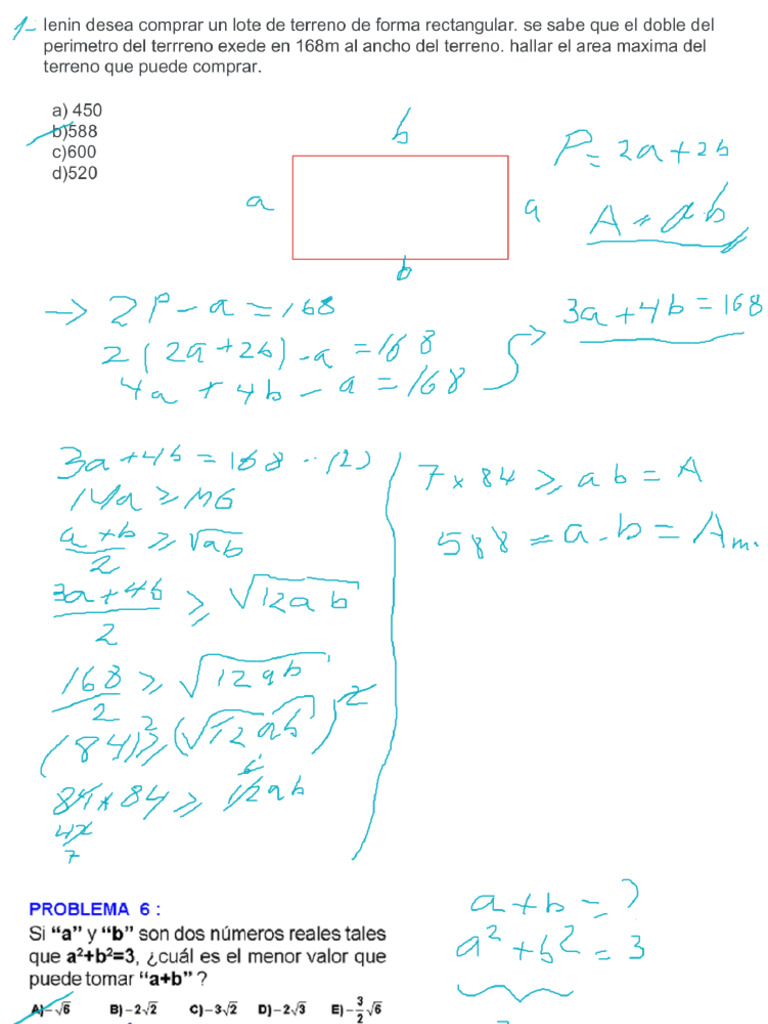 1- lenin desea comprar un lote de terreno de forma rectangular. se sabe que el doble del
perimetro del terrreno exede en 168m al ancho del terreno. hallar el area maxima del
terreno que puede comprar.
a) 450
b)588
c)600
d)520
b
a
a
b
P = 2a + 2b
A = a.b
→ 2P - a = 168
2(2a + 2b) - a = 168
4a + 4b - a = 168
3a + 4b = 168
3a + 4b = 168 ... (2)
MA ≥ MG
a + b / 2 ≥ √ab
3a + 4b / 2 ≥ √12ab
168 / 2 ≥ √12ab
(84)² ≥ (√12ab)²
84 × 84 ≥ 12ab
7
7 × 84 ≥ ab = A
588 = a.b = Am.
PROBLEMA 6 :
Si “a” y “b” son dos números reales tales
que a²+b²=3, ¿cuál es el menor valor que
puede tomar “a+b” ?
A)-√6 B)-2√2 C)-3√2 D)-2√3 E)-3/2√6
a + b = ?
a² + b² = 3